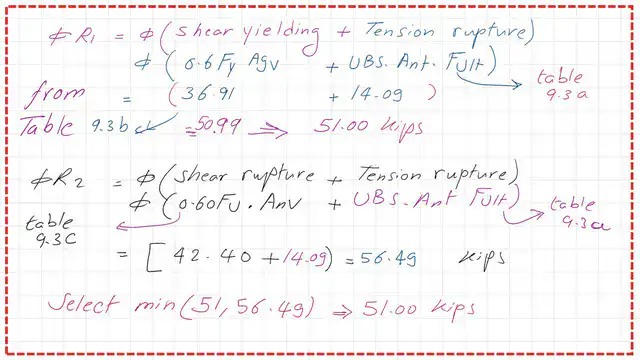 φR1 = φ(shear yielding + Tension rupture)
φ(0.6Fy Agv + UBS. Ant. Fult)
table 9.3a
from = (36.91 + 14.09)
Table 9.3b = 50.99 ⇒ 51.00 Kips
φR2 = φ(shear rupture + Tension rupture)
φ(0.60FU. Anv + UBS. Ant Fult)
table 9.3a
table 9.3C
= [42.40 + 14.09) = 56.49 kips
Select min(51, 56.49) ⇒ 51.00 Kips